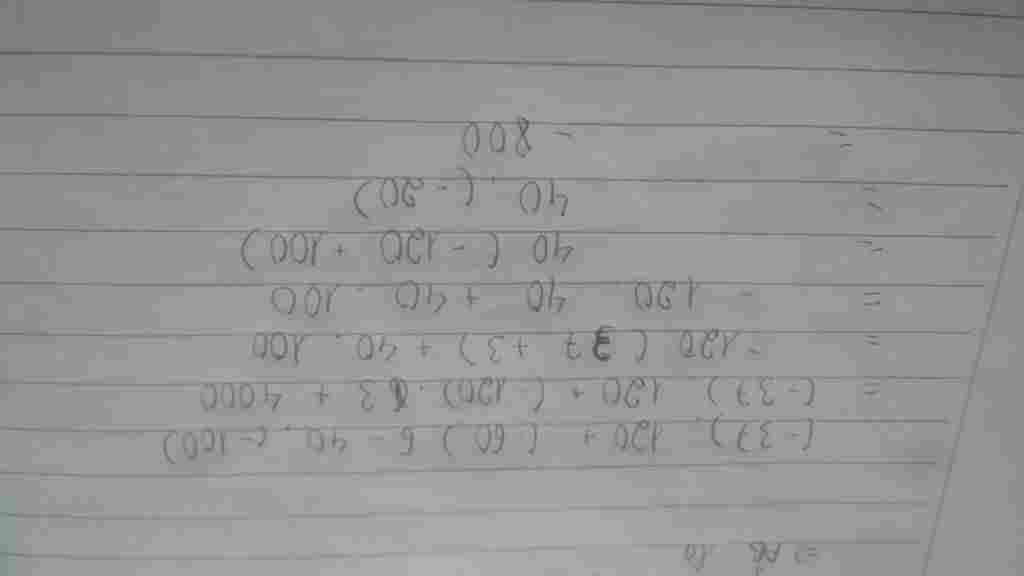 (-37). 120 + (60) 6 - 40. (-100)
= (-37). 120 + (-120). 3 + 4000
= -120 (37 + 3) + 40. 100
= - 120. 40 + 40. 100
= 40 (-120 + 100)
= 40. (-20)
= - 800